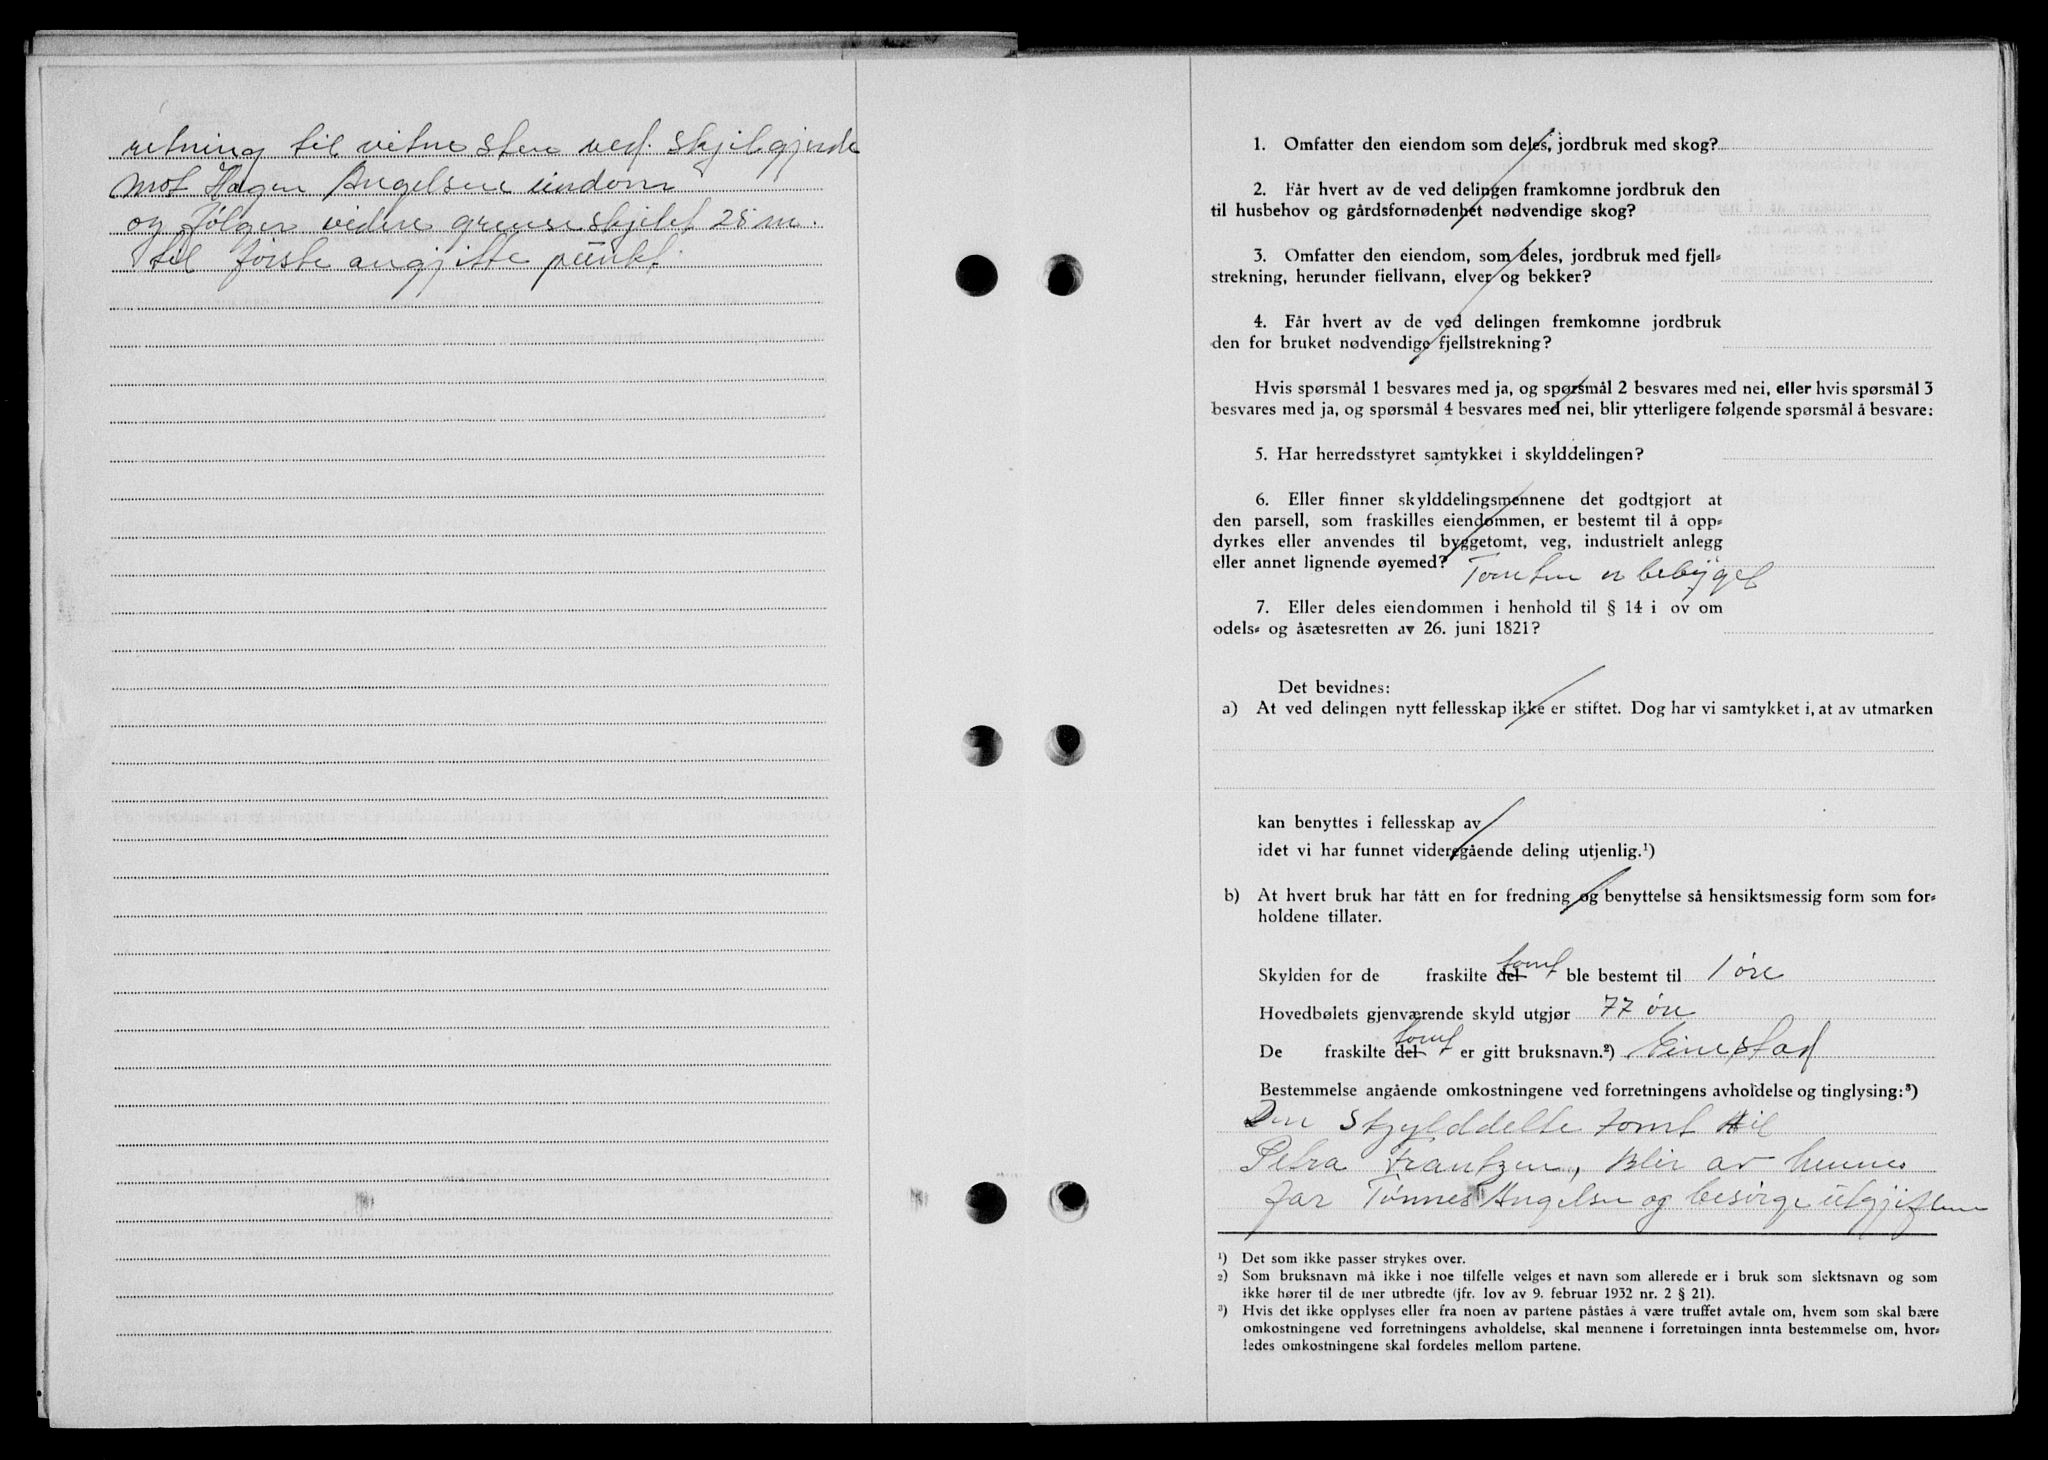 retning til vitne sten ved. skjelgjerde
mot Hagen Angelsens eiendom
og følger videre grense skjelet 25 m.
til første angjitte punkt.
1. Omfatter den eiendom som deles, jordbruk med skog?
2. Får hvert av de ved delingen framkomne jordbruk den
til husbehov og gårdsfornødenhet nødvendige skog?
3. Omfatter den eiendom, som deles, jordbruk med fjell=
strekning, herunder fiellvann, elver og bekker?
4. Får hvert av de ved delingen fremkomne jordbruk
den for bruket nødvendige fjellstrekning?
Hvis spørsmål 1 besvares med ja, og spørsmål 2 besvares med nei, eller hvis spørsmål 3
besvares med ja, og spørsmål 4 besvares med nei, blir ytterligere følgende spørsmål å besvare:
5. Har herredsstyret samtykket i skylddelingen?
6. Eller finner skylddelingsmennene det godtgjort at
den parsell, som fraskilles eiendommen, er bestemt til å opp=
dyrkes eller anvendes til byggetomt, veg, industrielt anlegg
eller annet lignende øyemed? Tomten er bebyget
7. Eller deles eiendommen i henhold til § 14 i ov om
odels= og åsætesretten av 26. juni 1821?
Det bevidnes:
a) At ved delingen nytt fellesskap ikke er stiftet. Dog har vi samtykket i, at av utmarken
kan benyttes i fellesskap av
idet vi har funnet videregående deling utjenlig.¹)
b) At hvert bruk har tått en for fredning og benyttelse så hensiktsmessig form som for=
holdene tillater.
Skylden for de fraskilte del tomt ble bestemt til 1 øre
Hovedbølets gjenværende skyld utgjør 77 øre
De fraskilte del tomt er gitt bruksnavn.²)
Bestemmelse angående omkostningene ved forretningens avholdelse og tinglysing:³)
Den skylddelte tomt til
Petra Frantzen, blir av hennes
far Tønnes Angelsen og besørge utgjiftene
¹) Det som ikke passer strykes over.
²) Som bruksnavn må ikke i noe tilfelle velges et navn som allerede er i bruk som slektsnavn og som
ikke hører til de mer utbredte (jfr. lov av 9. februar 1932 nr. 2 § 21).
³) Hvis det ikke opplyses eller fra noen av partene påståes å være truffet avtale om, hvem som skal bære
omkostningene ved forretningens avholdelse, skal mennene i forretningen innta bestemmelse om, hvor=
ledes omkostningene skal fordeles mellom partene.